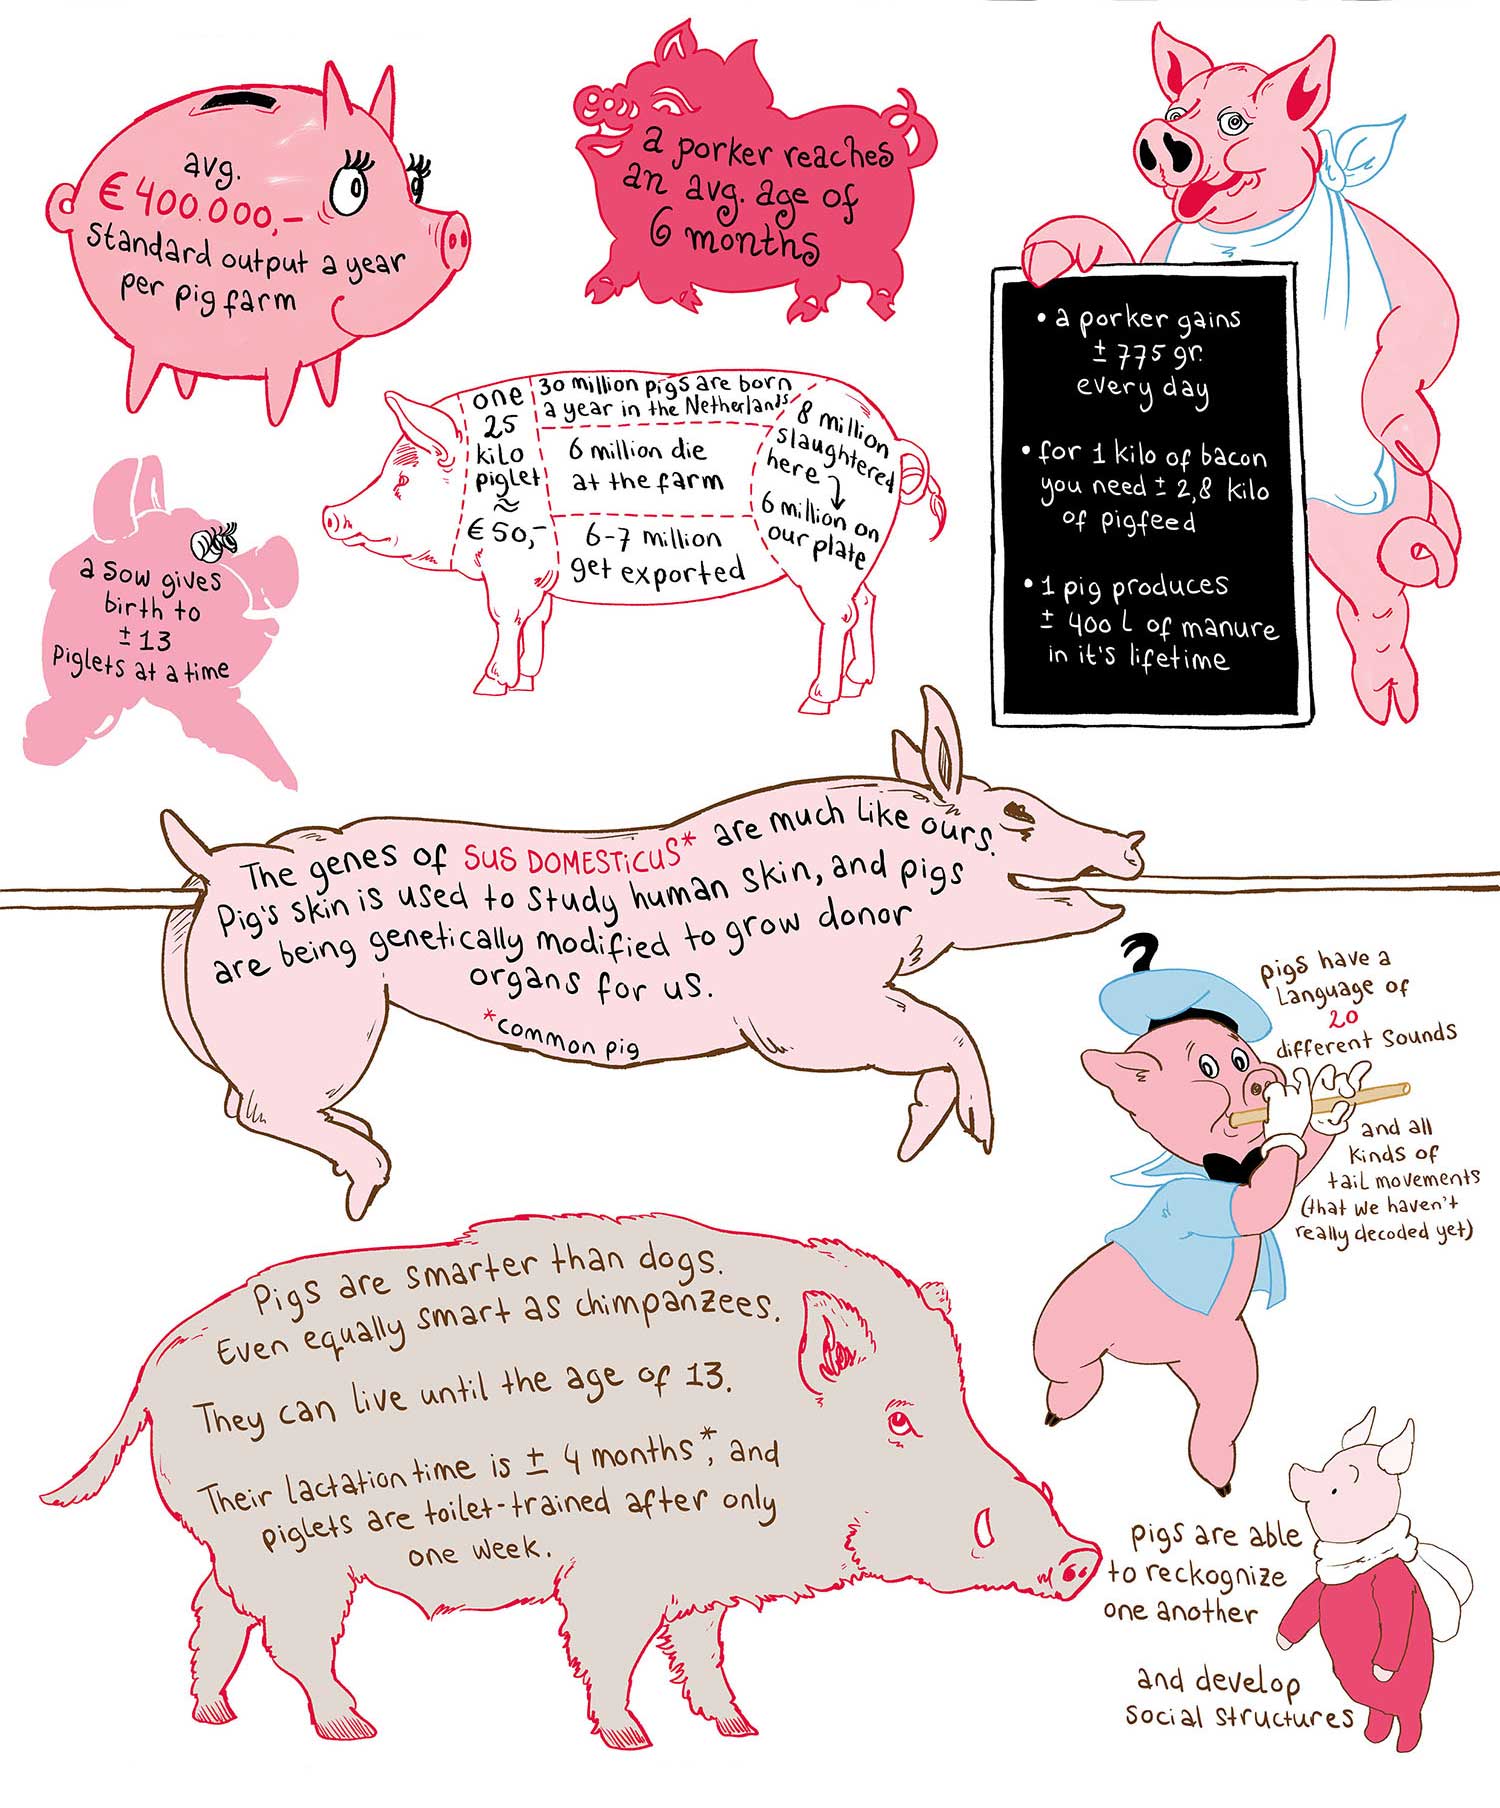 avg.
€ 400.000,-
standard output a year
per pig farm
a porker reaches
an avg. age of
6 months
• a porker gains
± 775 gr.
every day
• for 1 kilo of bacon
you need ± 2,8 kilo
of pigfeed
• 1 pig produces
± 400 L of manure
in it's lifetime
one
25
kilo
piglet
≈
€ 50,-
30 million pigs are born
a year in the Netherlands
6 million die
at the farm
6-7 million
get exported
8 million
slaughtered
here
6 million on
our plate
a sow gives
birth to
± 13
Piglets at a time
The genes of SUS DOMESTICUS* are much like ours.
Pig's skin is used to study human skin, and pigs
are being genetically modified to grow donor
organs for us.
*common pig
pigs have a
language of
20
different sounds
and all
kinds of
tail movements
(that we haven't
really decoded yet)
Pigs are smarter than dogs.
Even equally smart as chimpanzees.
They can live until the age of 13.
Their lactation time is ± 4 months*, and
piglets are toilet-trained after only
one week.
pigs are able
to reckognize
one another
and develop
social structures